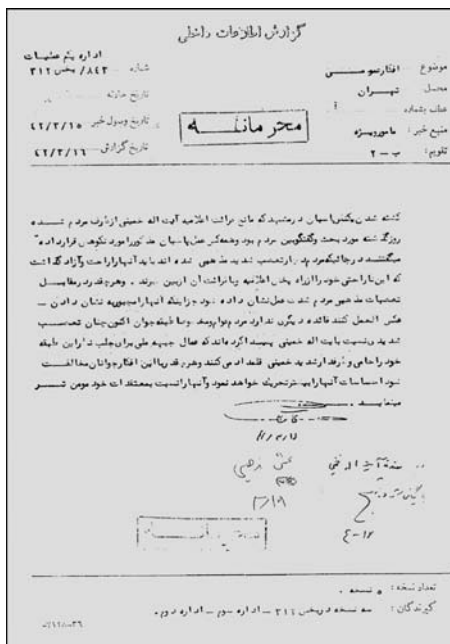 گزارش اطلاعات داخلی
اداره یکم عملیات
شماره ۳۱۲/۸۴۳ بخش
موضوع افکار عمومی
محل تهران
تاریخ حادثه
عطف بشماره
تاریخ وصول خبر ۴۲/۳/۱۵
منبع خبر: مامور ویژه
تاریخ گزارش ۴۲/۳/۱۶
تقویم: ب - ۲
محرمانه
کشته شدن یکنفر پاسبان در مشهد که مانع قرائت اعلامیه آیت اله خمینی از طرف مردم شده
روز گذشته مورد بحث و گفتگوی بین مردم بود و همه کس عمل پاسبان مذکور را مورد نکوهش قرار داده
میگفتند در جائیکه مردم تعصب شدید مذهبی شده اند باید آنها را راحت و آزاد گذاشت
که این ناراحتی خود را از راه پخش اعلامیه و یا قرائت آن از بین ببرند . و هر قدر در مقابل
تعصبات مذهبی مردم شدت عمل نشان داده شود جز اینکه آنها را مجبور به نشان دادن -
عکس العمل کنند فائده دیگری ندارد مردم عوام و متوسط و طبقه جوان اکنون چنان تعصب
شدیدی نسبت بایت اله خمینی پیدا کرده اند که عمال جبهه ملی برای جلب نظر این طبقه
خود را حامی و طرفدار شدید خمینی قلمداد می کنند و هر قدر با این افکار جوانان مخالفت
شود احساسات آنها را بیشتر تحریک خواهد نمود و آنها را نسبت بمعتقدات خود مومن تر
مینماید .
تعداد نسخه: ۵ نسخه .
گیرندگان: سه نسخه در بخش ۳۱۶ - اداره سوم - اداره دوم .